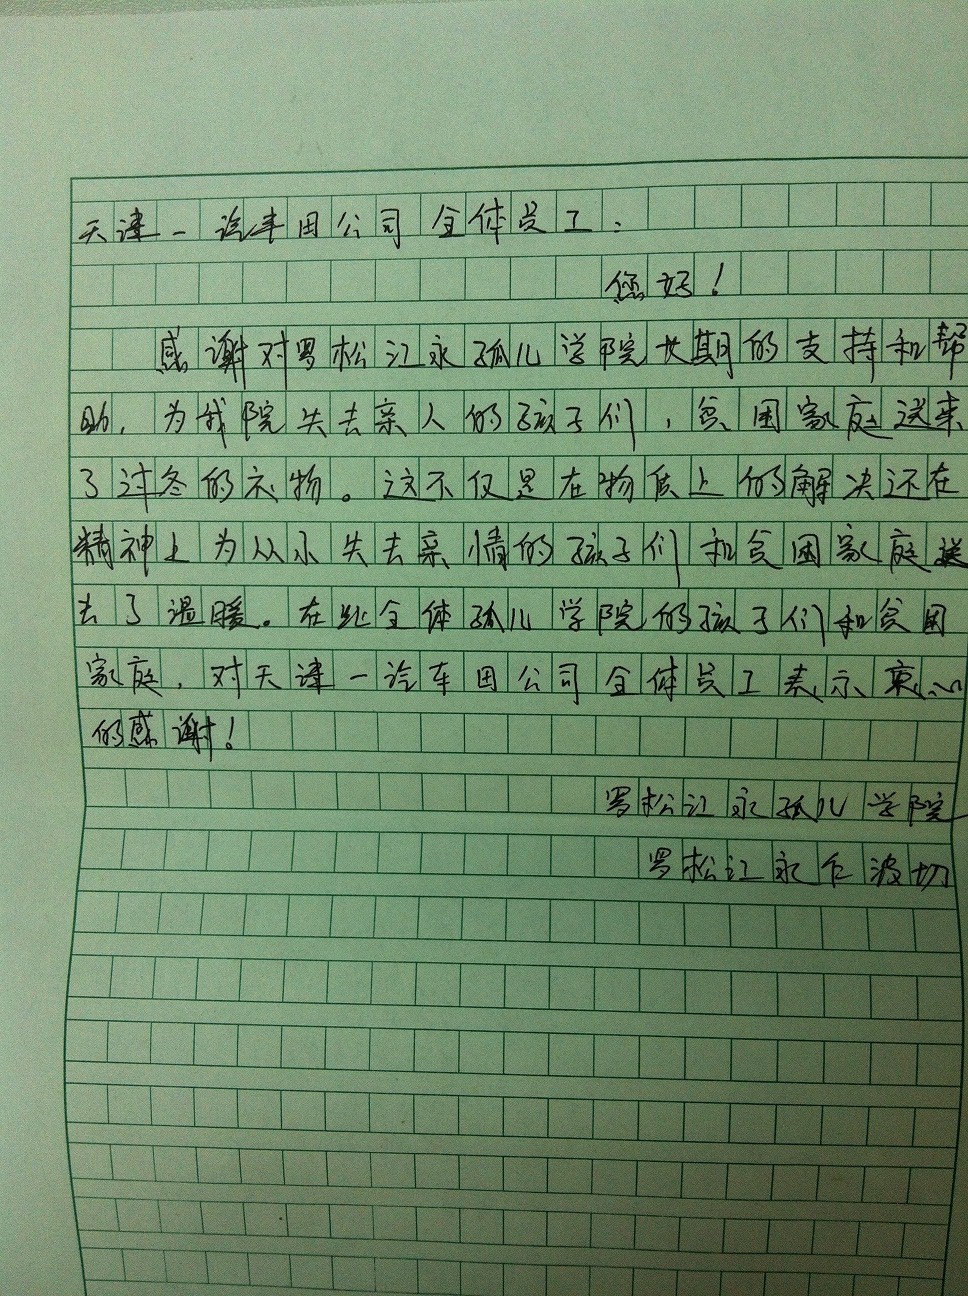 天津一汽丰田公司全体员工：
您好！
感谢对罗松江永孤儿学院长期的支持和帮
助，为我院失去亲人的孩子们，贫困家庭送来
了过冬的衣物。这不仅是在物质上的解决还在
精神上为从小失去亲情的孩子们和贫困家庭送
去了温暖。在此全体孤儿学院的孩子们和贫困
家庭，对天津一汽车田公司全体员工表示衷心
的感谢！
罗松江永孤儿学院
罗松江永仁波切